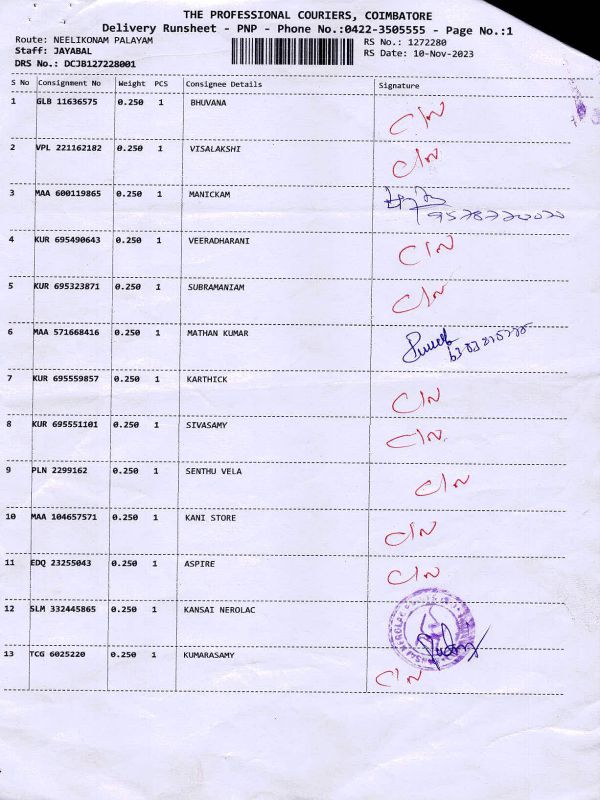 THE PROFESSIONAL COURIERS, COIMBATORE
Delivery Runsheet - PNP - Phone No.:0422-3505555 - Page No.:1
Route: NEELIKONAM PALAYAM RS No.: 1272280
Staff: JAYABAL RS Date: 10-Nov-2023
DRS No.: DCJB127228001
S No Consignment No Weight PCS Consignee Details Signature
1 GLB 11636575 0.250 1 BHUVANA C/N
2 VPL 221162182 0.250 1 VISALAKSHI C/N
3 MAA 600119865 0.250 1 MANICKAM
4 KUR 695490643 0.250 1 VEERADHARANI C/N
5 KUR 695323871 0.250 1 SUBRAMANIAM C/N
6 MAA 571668416 0.250 1 MATHAN KUMAR
7 KUR 695559857 0.250 1 KARTHICK C/N
8 KUR 695551101 0.250 1 SIVASAMY C/N
9 PLN 2299162 0.250 1 SENTHU VELA C/N
10 MAA 104657571 0.250 1 KANI STORE C/N
11 EDQ 23255043 0.250 1 ASPIRE C/N
12 SLM 332445865 0.250 1 KANSAI NEROLAC
NEROLAC
13 TCG 6025220 0.250 1 KUMARASAMY C/N